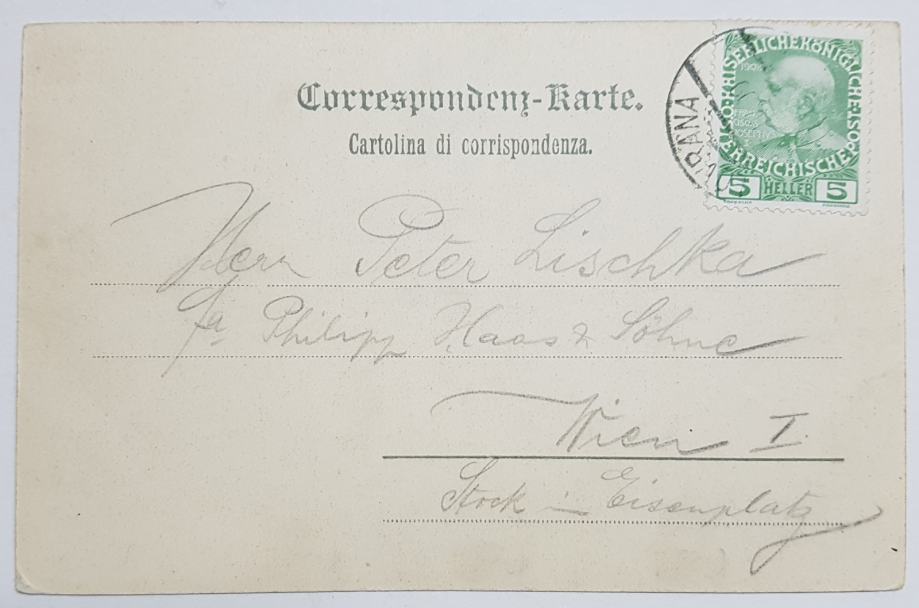 Correspondenz-Karte.
Cartolina di corrispondenza.
KAISERLICHE KÖNIGLICHE POST
ÖSTERREICHISCHE
1908
5 HELLER 5
Herrn Peter Lischka
Fa Philipp Haas & Söhne
Wien I.
Stock im Eisenplatz